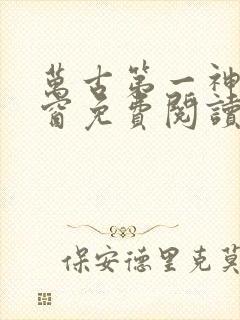 萬古第一神
窗免費閱讀
保安德里克莫